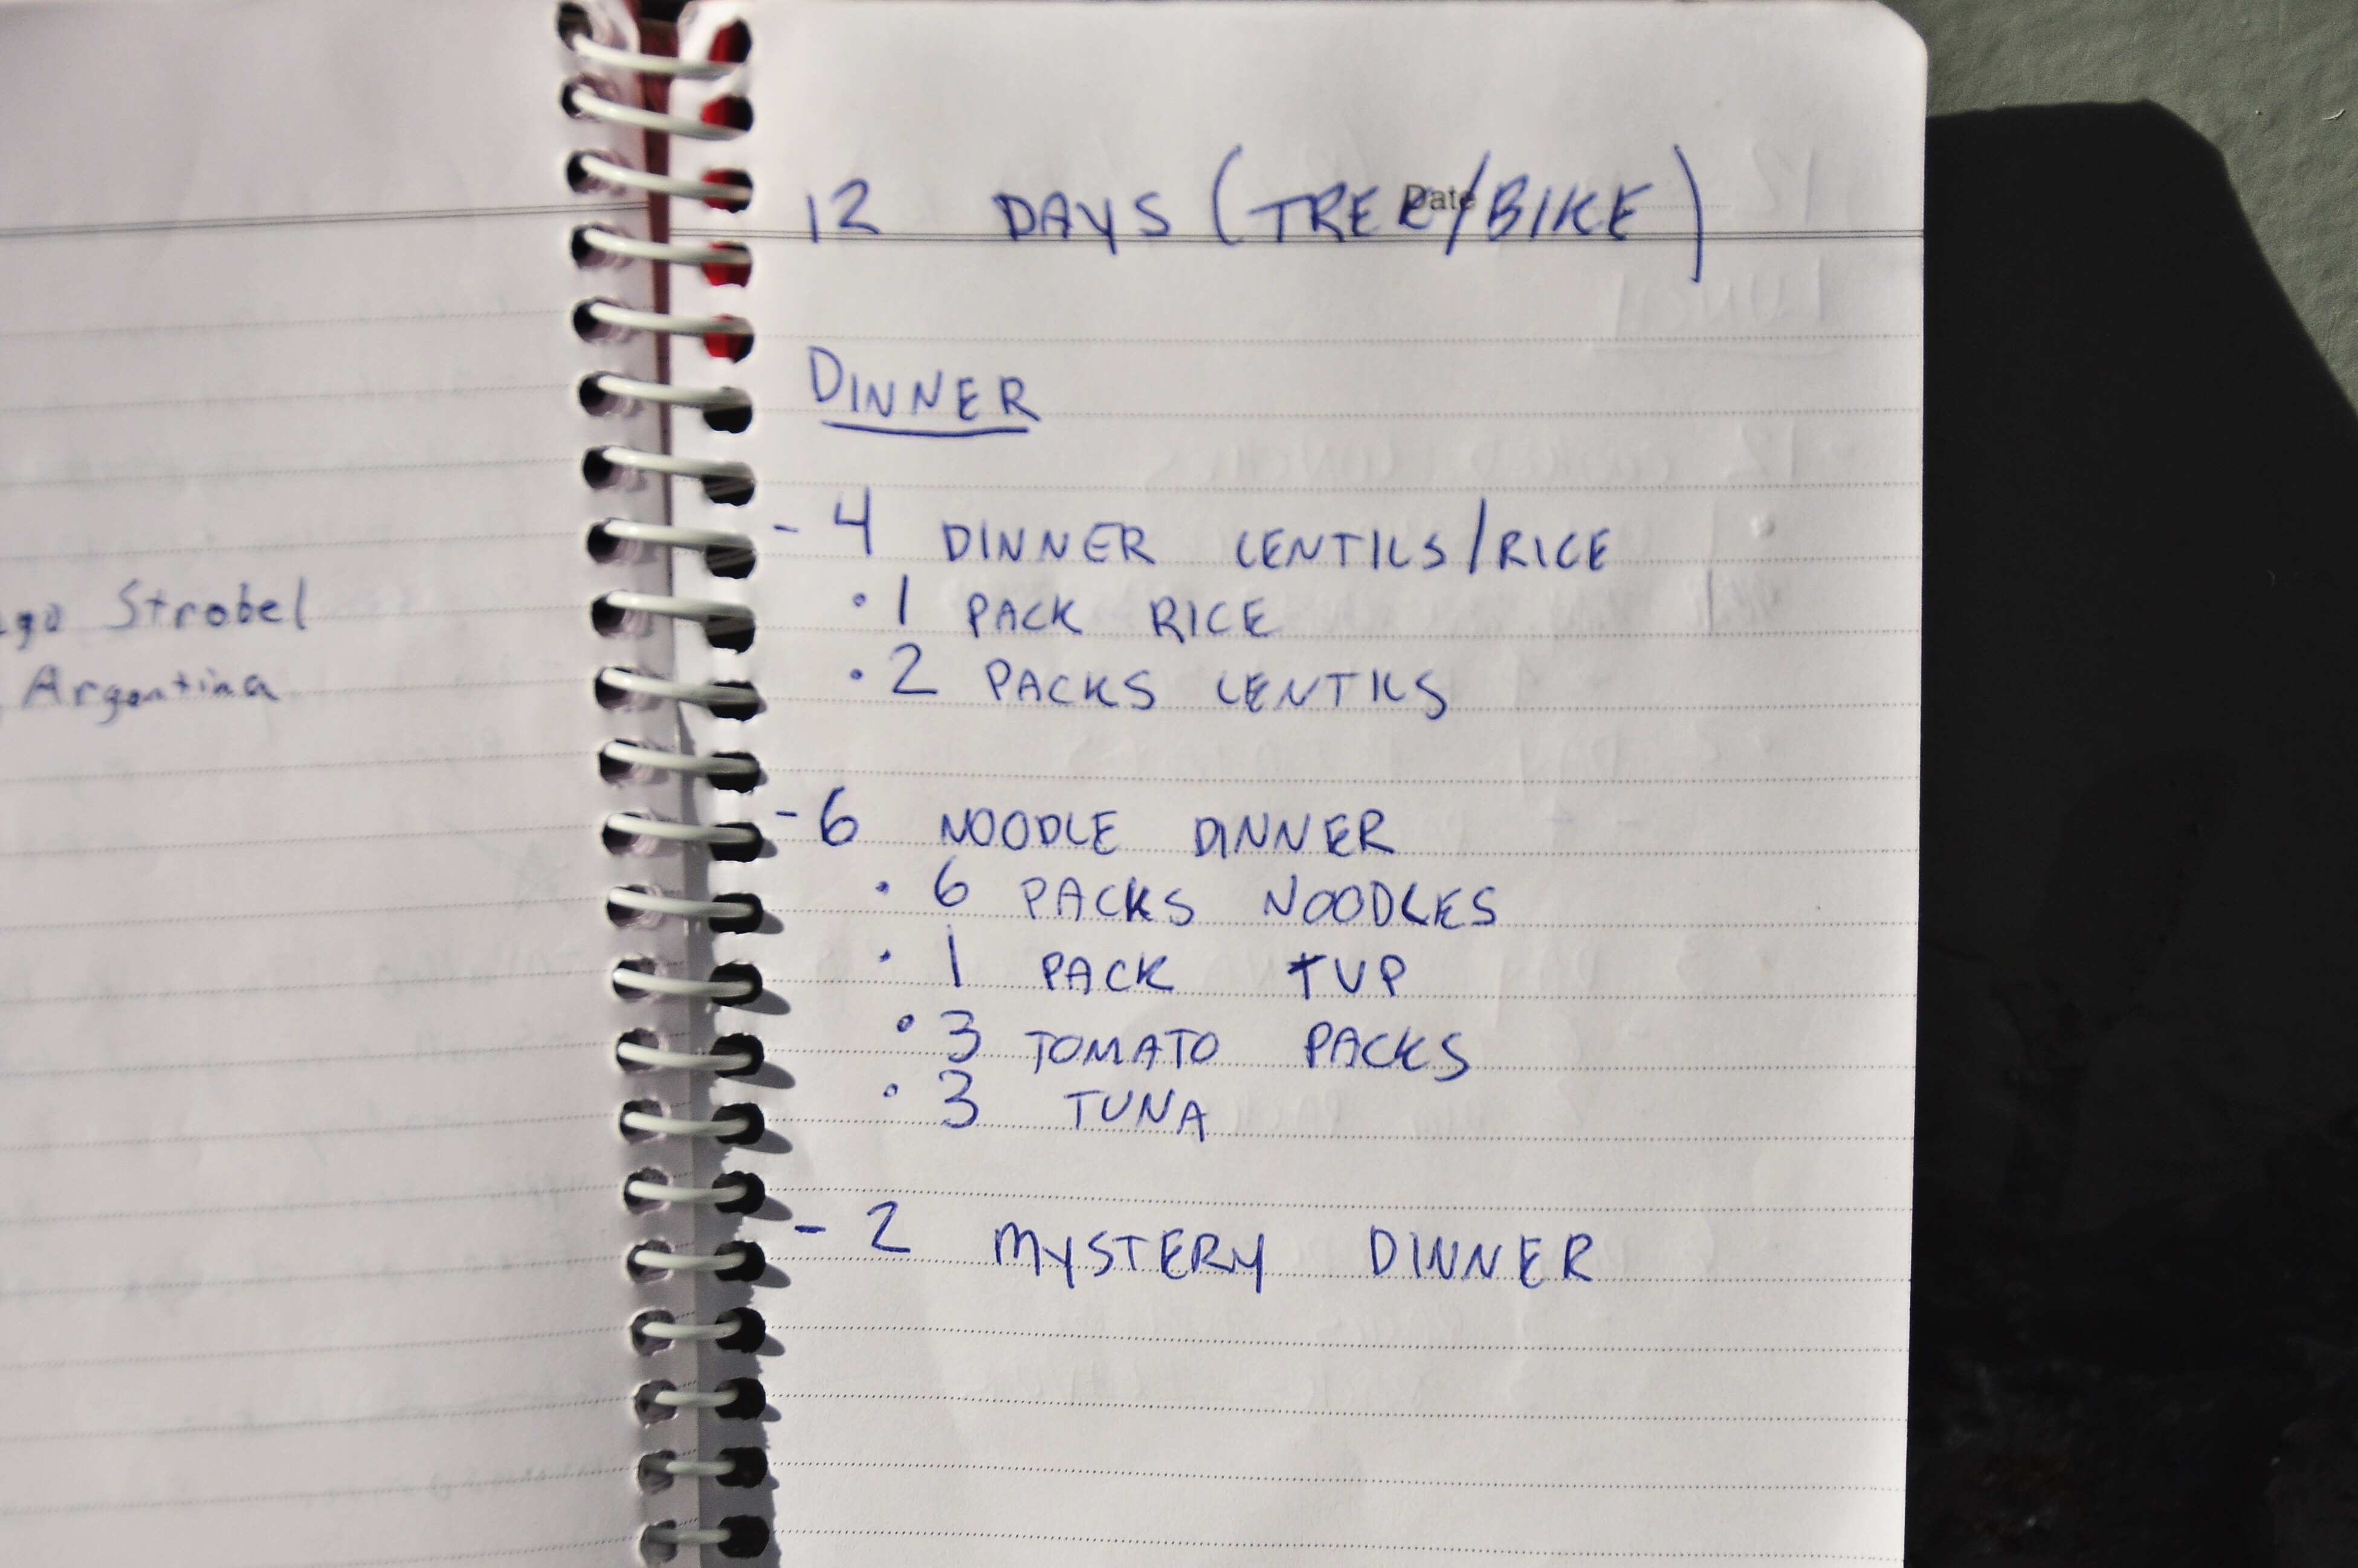 Strobel
Argentina
Date
12 DAYS (TREK/BIKE)
DINNER
- 4 DINNER LENTILS/RICE
• 1 PACK RICE
• 2 PACKS LENTILS
- 6 NOODLE DINNER
• 6 PACKS NOODLES
• 1 PACK TVP
• 3 TOMATO PACKS
• 3 TUNA
- 2 MYSTERY DINNER